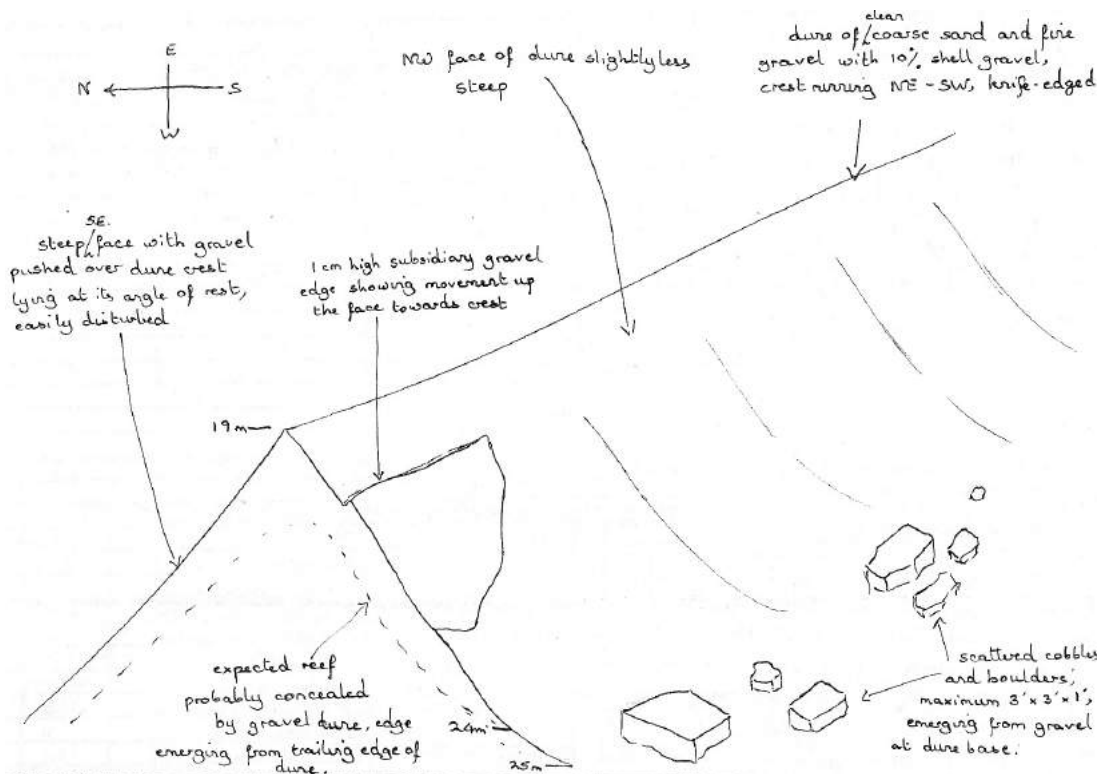 E
N S
W
NW face of dune slightly less
steep
clean
dune of coarse sand and fine
gravel with 10% shell gravel,
crest running NE-SW, knife-edged
S.E.
steep face with gravel
pushed over dune crest
lying at its angle of rest,
easily disturbed
1cm high subsidiary gravel
edge showing movement up
the face towards crest
19m
expected reef
probably concealed
by gravel dune, edge
emerging from trailing edge of
dune.
24m
25m
scattered cobbles
and boulders,
maximum 3'x3'x1',
emerging from gravel
at dune base.